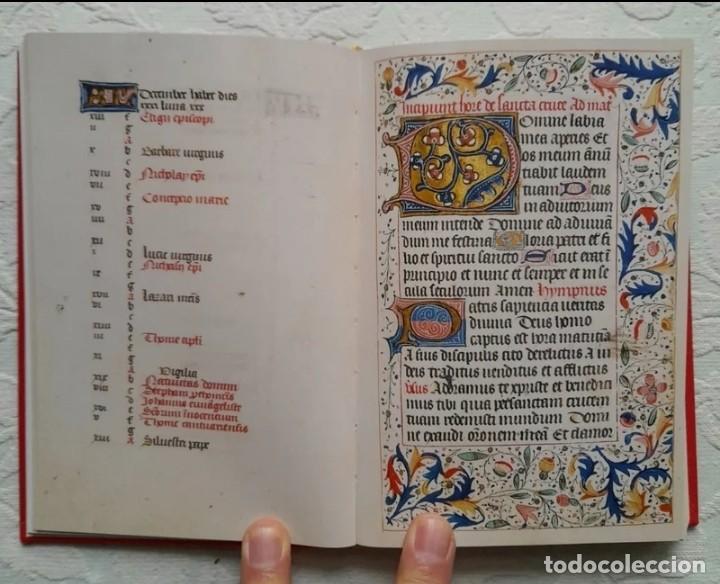 KL December habet dies
xxxi luna xxx
xiii f Eligii episcopi
ii g
A
x b Barbare virginis
c
xviii d Nicholay epi
vii e
f Conceptio marie
xv g
iiii A
b
xii c
i d Lucie virginis
e Nichasii epi
ix f
g
xvii A Lazari mris
vi b
c
xiiii d
iii e Thome apli
f
xi g Vigilia
xix A Nativitas domini
viii b Stephani prthomris
c Johannis evangeliste
xvi d Sctorum innocentum
v e Thome cantuariensis
f
xiii g Silvestri pape
A
Incipiunt hore de sancta cruce Ad mat
Domine labia
mea aperies Et
os meum anun
tiabit laudem
tuam Deus
in adiutorium
meum intende Domine ad adiuvan
dum me festina Gloria patri et fi
lio et spiritui sancto Sicut erat in
principio et nunc et semper et in se
cula seculorum Amen Hympnus
Patris sapiencia veritas
divina Deus homo
captus est hora matutina
A suis discipulis cito derelictus A iu
deis traditus venditus et afflictus
v̄sus Adoramus te xpriste et benedici
mus tibi quia per sanctam crucem
tuam redemisti mundum Domi
ne exaudi oronem mea Et clamor
todocoleccion